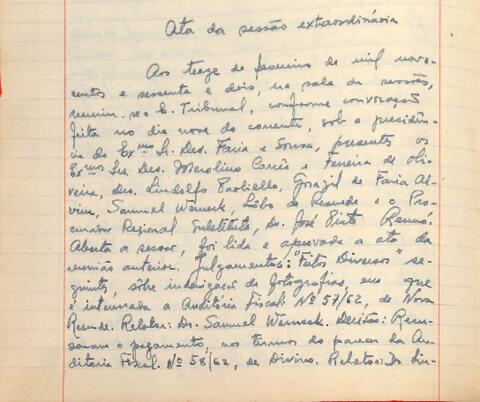 Ata da sessão extraordinária
Aos treze de fevereiro de mil nove-
centos e sessenta e dois, na sala de sessões,
reuniu-se o E. Tribunal, conforme convocação
feita no dia nove do corrente, sob a presidên-
cia do Exmo Sr. Des. Faria e Sousa, presentes os
Exmos Srs. Des. Merolino Corrêa e Ferreira de Oli-
veira, Drs. Lindolfo Paoliello, Gorazil de Faria Al-
vim, Samuel Werneck, Lôbo de Resende e o Pro-
curador Regional Substituto, Dr. José Pinto Rennó.
Aberta a sessão, foi lida e aprovada a ata da
reunião anterior. Julgamentos: "Feitos Diversos" se-
guintes, sôbre indenização de fotografias, em que
é interessada a Auditoria Fiscal: Nº 57/62, de Nova
Resende. Relator: Dr. Samuel Werneck. Decisão: Recu-
saram o pagamento, nos termos do parecer da Au-
ditoria Fiscal. Nº 58/62, de Divino. Relator: Dr. Lin-